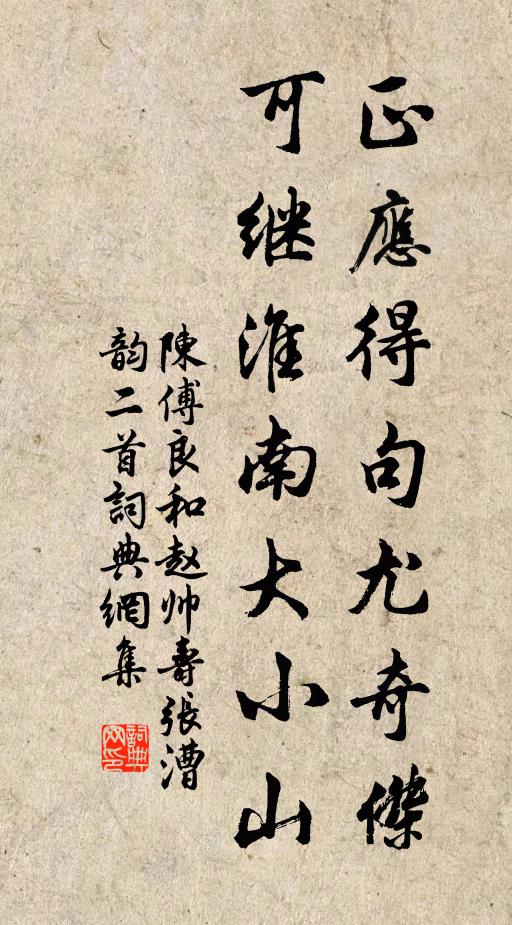 正應得句尤奇傑
可继淮南大小山
陳傅良和赵帅壽張漕
韵二首詞典網集
詞典网印